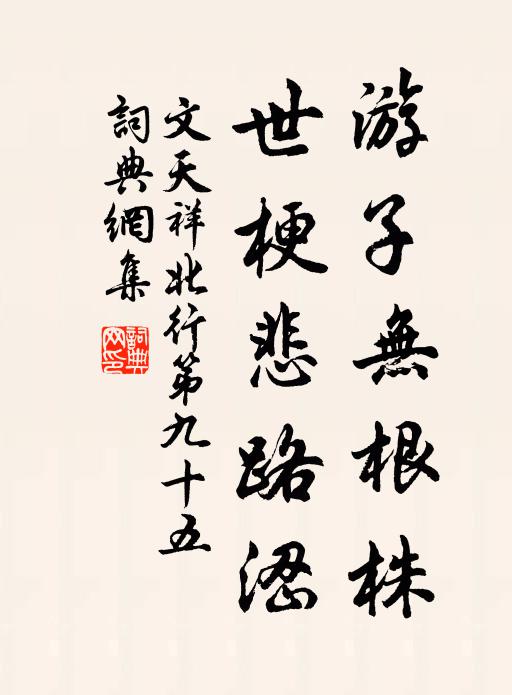 游子無根株
世梗悲路涩
文天祥北行第九十五
詞典網集
詞典
网印